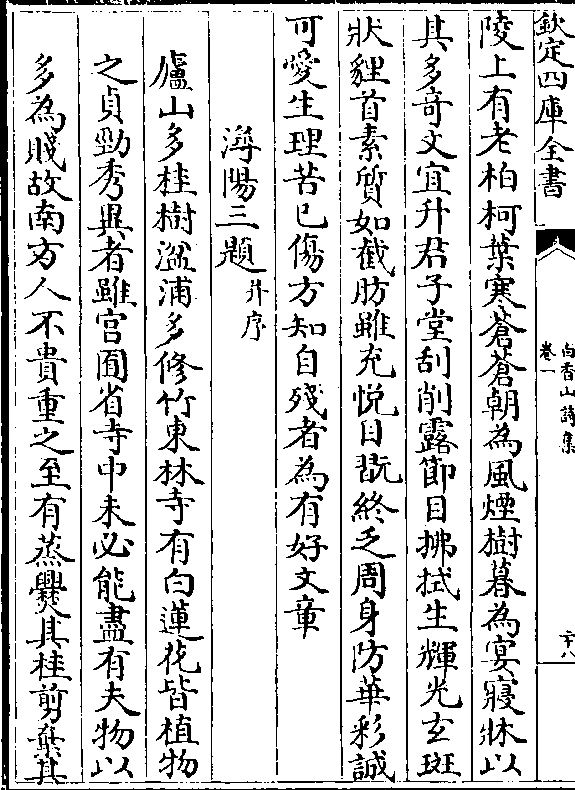 欽定四庫全書
白香山詩集
卷一
十八
陵上有老柏柯葉寒蒼蒼朝為風煙樹暮為宴寢牀以
其多竒文宜升君子堂刮削露節目拂拭生輝光玄斑
狀貍首素質如截肪雖充悅目翫終乏周身防華彩誠
可愛生理苦已傷方知自殘者為有好文章
潯陽三題并序
廬山多桂樹湓浦多修竹東林寺有白蓮花皆植物
之貞勁秀異者雖宫囿省寺中未必能盡有夫物以
多為賤故南方人不貴重之至有蒸㸑其桂剪棄其